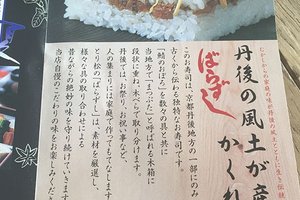 丹後の風土が産
かくれ
ばらずし
このお寿司は、京都丹後地方の一部にのみ
古くから伝わる独特なお寿司です。
「鯖のおぼろ」を数々の具と共に
当地方で「まつぶた」と呼ばれる木箱に
段状に重ね、木べらで取り分けます。
丹後では、お祭り、お祝い事など、
人の集まりには家庭で作ってもてなします。
とり松の「ばらずし」は、素材を厳選し、
様々な具の取り合わせによる
昔ながらの絶妙の味を守り続けています。
当店自慢のこだわりの味をお楽しみくだ